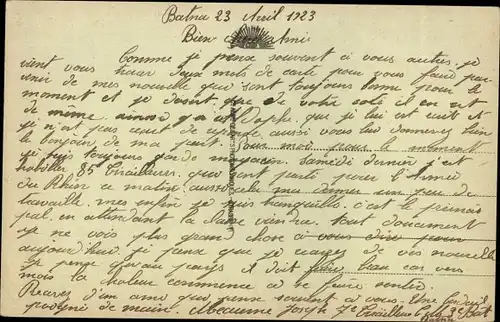 Batna 23 Avril 1923
Bien Ami
Comme je pense souvent à vous autres je
vient vous deux mots de carte pour vous faire par
venir de mes nouvelle qui sont toujours bonne pour le
moment et je désire que de votre coté il en est
de même que je lui est écrit et
je n'ai pas reçut de réponse aussi vous lui donnerez bien
le bonjour de ma part. pour le moment
je suis toujours garde magasin samedi dernier j'ai
habiller 85 tirailleurs qui sont parti pour l'Armée
du Rhin ce matin aussi cela ma donner un peu de
travaille mes enfin je suis tranquille c'est le princi
pal en attendant la classe viendra tout doucement
je ne vois plus grand chose à vous dire pour
aujourd'hui je pense que je reçevez de vos nouvelle
je pense qu'au pays il doit faire beau car ici
mais la chaleur commence a se faire sentir
Recevez d'un ami qui pense souvent à vous
poignée de main Joseph 7e Tirailleurs
Batna